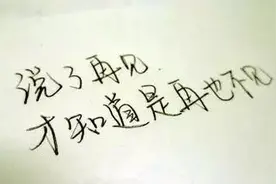 说了再见
才知道是再也不见